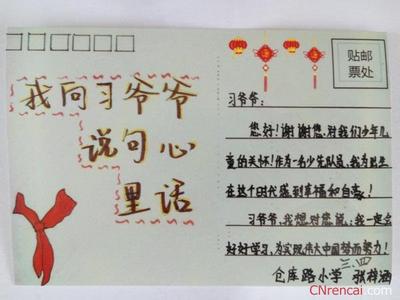 我向习爷爷
说句心
里话
贴邮
票处
习爷爷：
您好！谢谢您，对我们少年儿
童的关怀！作为一名少先队员，我为生
在这个时代感到幸福和自豪！
习爷爷，我想对您说：我一定会
好好学习，为实现伟大中国梦而努力！
三.四
仓库路小学 张梓涵
CNrencai.com